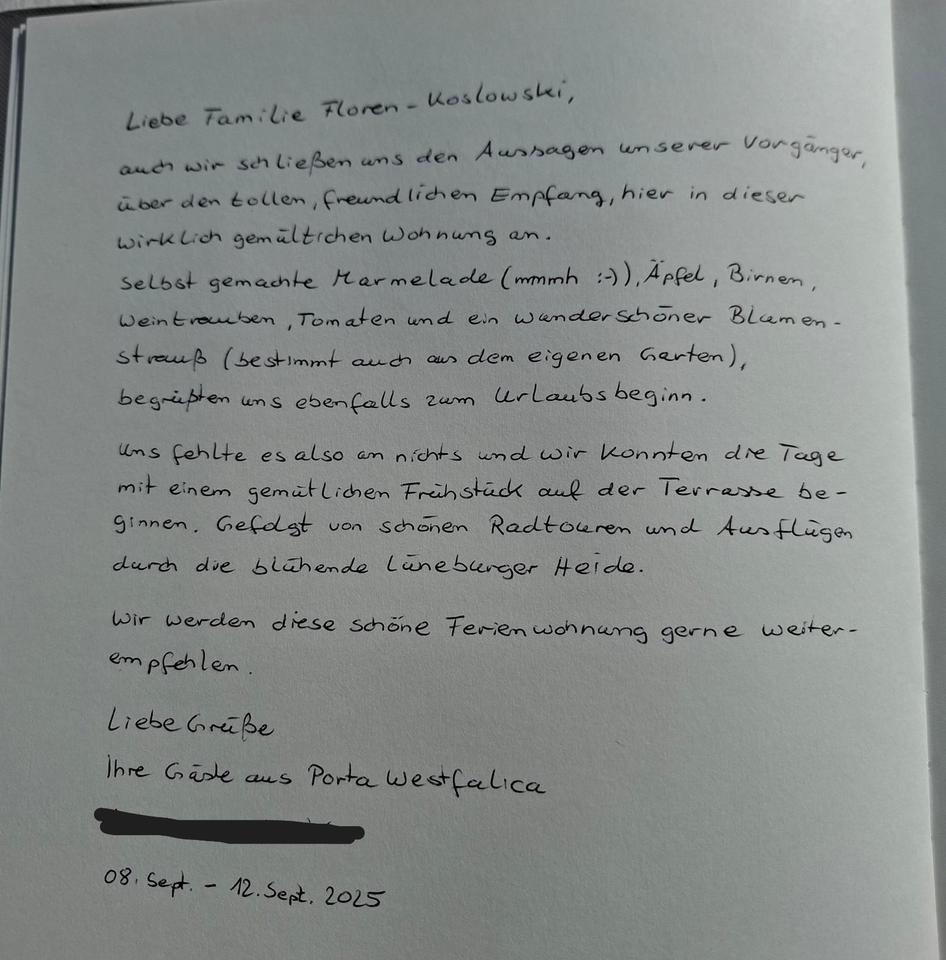 Liebe Familie Floren-Koslowski,
auch wir schließen uns den Aussagen unserer Vorgänger,
über den tollen, freundlichen Empfang, hier in dieser
wirklich gemültichen Wohnung an.
Selbst gemachte Marmelade (mmmh :-)), Äpfel, Birnen,
Weintrauben, Tomaten und ein wunderschöner Blumen-
strauß (bestimmt auch aus dem eigenen Garten),
begrüßten uns ebenfalls zum Urlaubsbeginn.
Uns fehlte es also an nichts und wir konnten die Tage
mit einem gemütlichen Frühstück auf der Terrasse be-
ginnen. Gefolgt von schönen Radtouren und Ausflügen
durch die blühende Lüneburger Heide.
Wir werden diese schöne Ferienwohnung gerne weiter-
empfehlen.
Liebe Grüße
Ihre Gäste aus Porta Westfalica
08. Sept. - 12. Sept. 2025